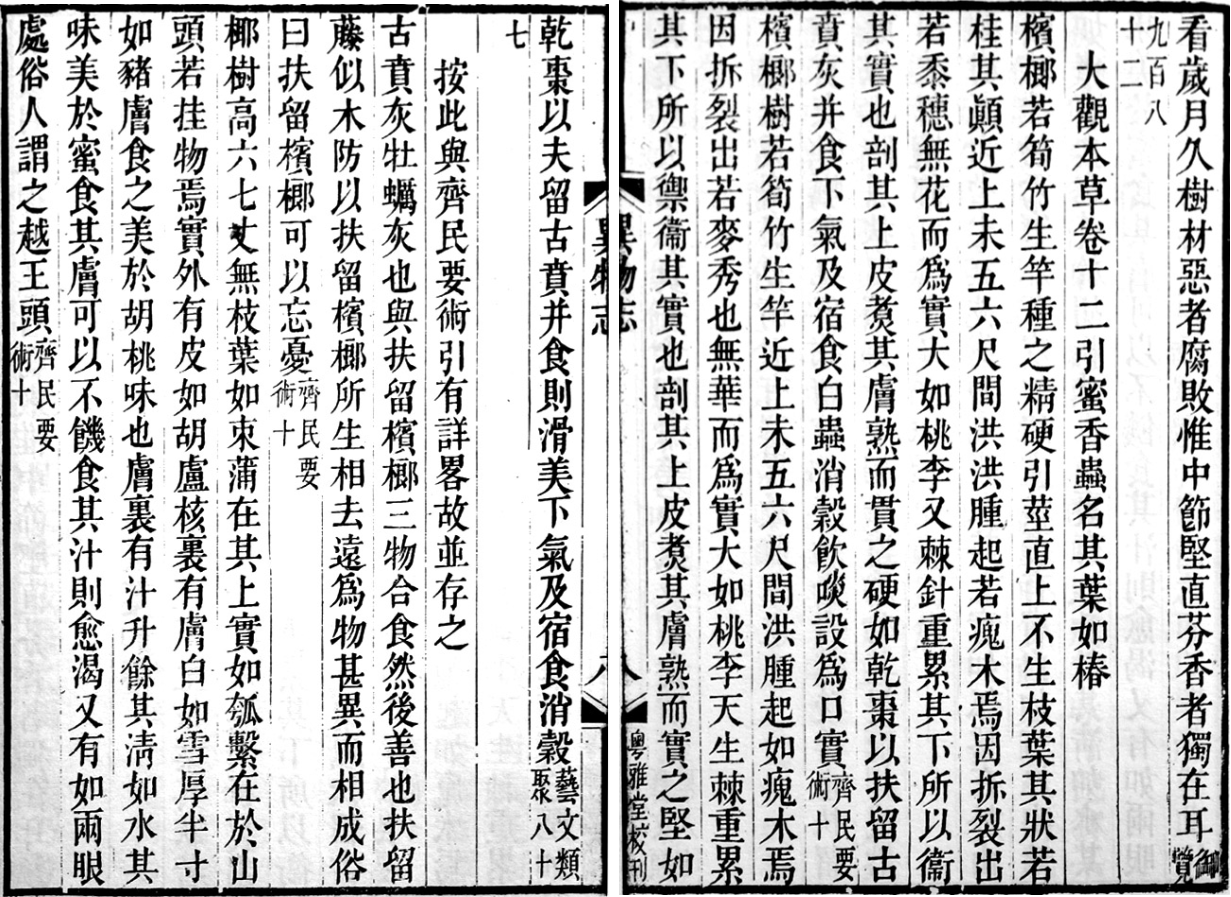 看歲月久樹材惡者腐敗惟中節堅直芬香者獨在耳御覽
九百八十二
大觀本草卷十二引蜜香蟲名其葉如椿
檳榔若筍竹生竿種之精硬引莖直上不生枝葉其狀若
桂其顚近上未五六尺間洪洪腫起若瘣木焉因拆裂出
若黍穗無花而爲實大如桃李又棘針重累其下所以衞
其實也剖其上皮煑其膚熟而貫之硬如乾棗以扶留古
賁灰并食下氣及宿食白蟲消穀飲啖設爲口實齊民要術十
檳榔樹若筍竹生竿近上未五六尺間洪腫起如瘣木焉
因拆裂出若麥秀也無華而爲實大如桃李天生棘重累
其下所以禦衞其實也剖其上皮煑其膚熟而實之堅如
異物志
八
粵雅堂校刊
乾棗以夫留古賁并食則滑美下氣及宿食消穀藝文類聚八十
七
按此與齊民要術引有詳畧故並存之
古賁灰牡蠣灰也與扶留檳榔三物合食然後善也扶留
藤似木防以扶留檳榔所生相去遠爲物甚異而相成俗
曰扶留檳榔可以忘憂齊民要術十
椰樹高六七丈無枝葉如束蒲在其上實如瓠繫在於山
頭若挂物焉實外有皮如胡盧核裏有膚白如雪厚半寸
如豬膚食之美於胡桃味也膚裏有汁升餘其淸如水其
味美於蜜食其膚可以不饑食其汁則愈渴又有如兩眼
處俗人謂之越王頭齊民要術十